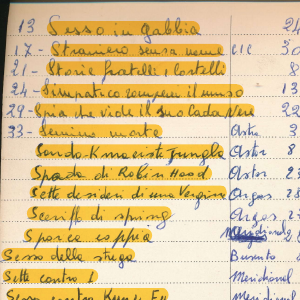 13 Sesso in gabbia 24
17 - Straniero senza nome CIC 30
21 - Storie fratelli e cortelli 8
24 - Simpatico com un il muso 13
29 - Spia che vide il suo Cadavere 22
33 - Semino morte Astor 3
Sando Kmaciste Jungla Astor 8
Spada di Robin Hood Astor 23
Sette desideri di una Vergine Argos 28
Sceriffo di spring Argos 2
Sporca coppia Meridional 28
Sesso della strega Bursuto 8
Sette contro Meridional
contro Kung Fu Meridional